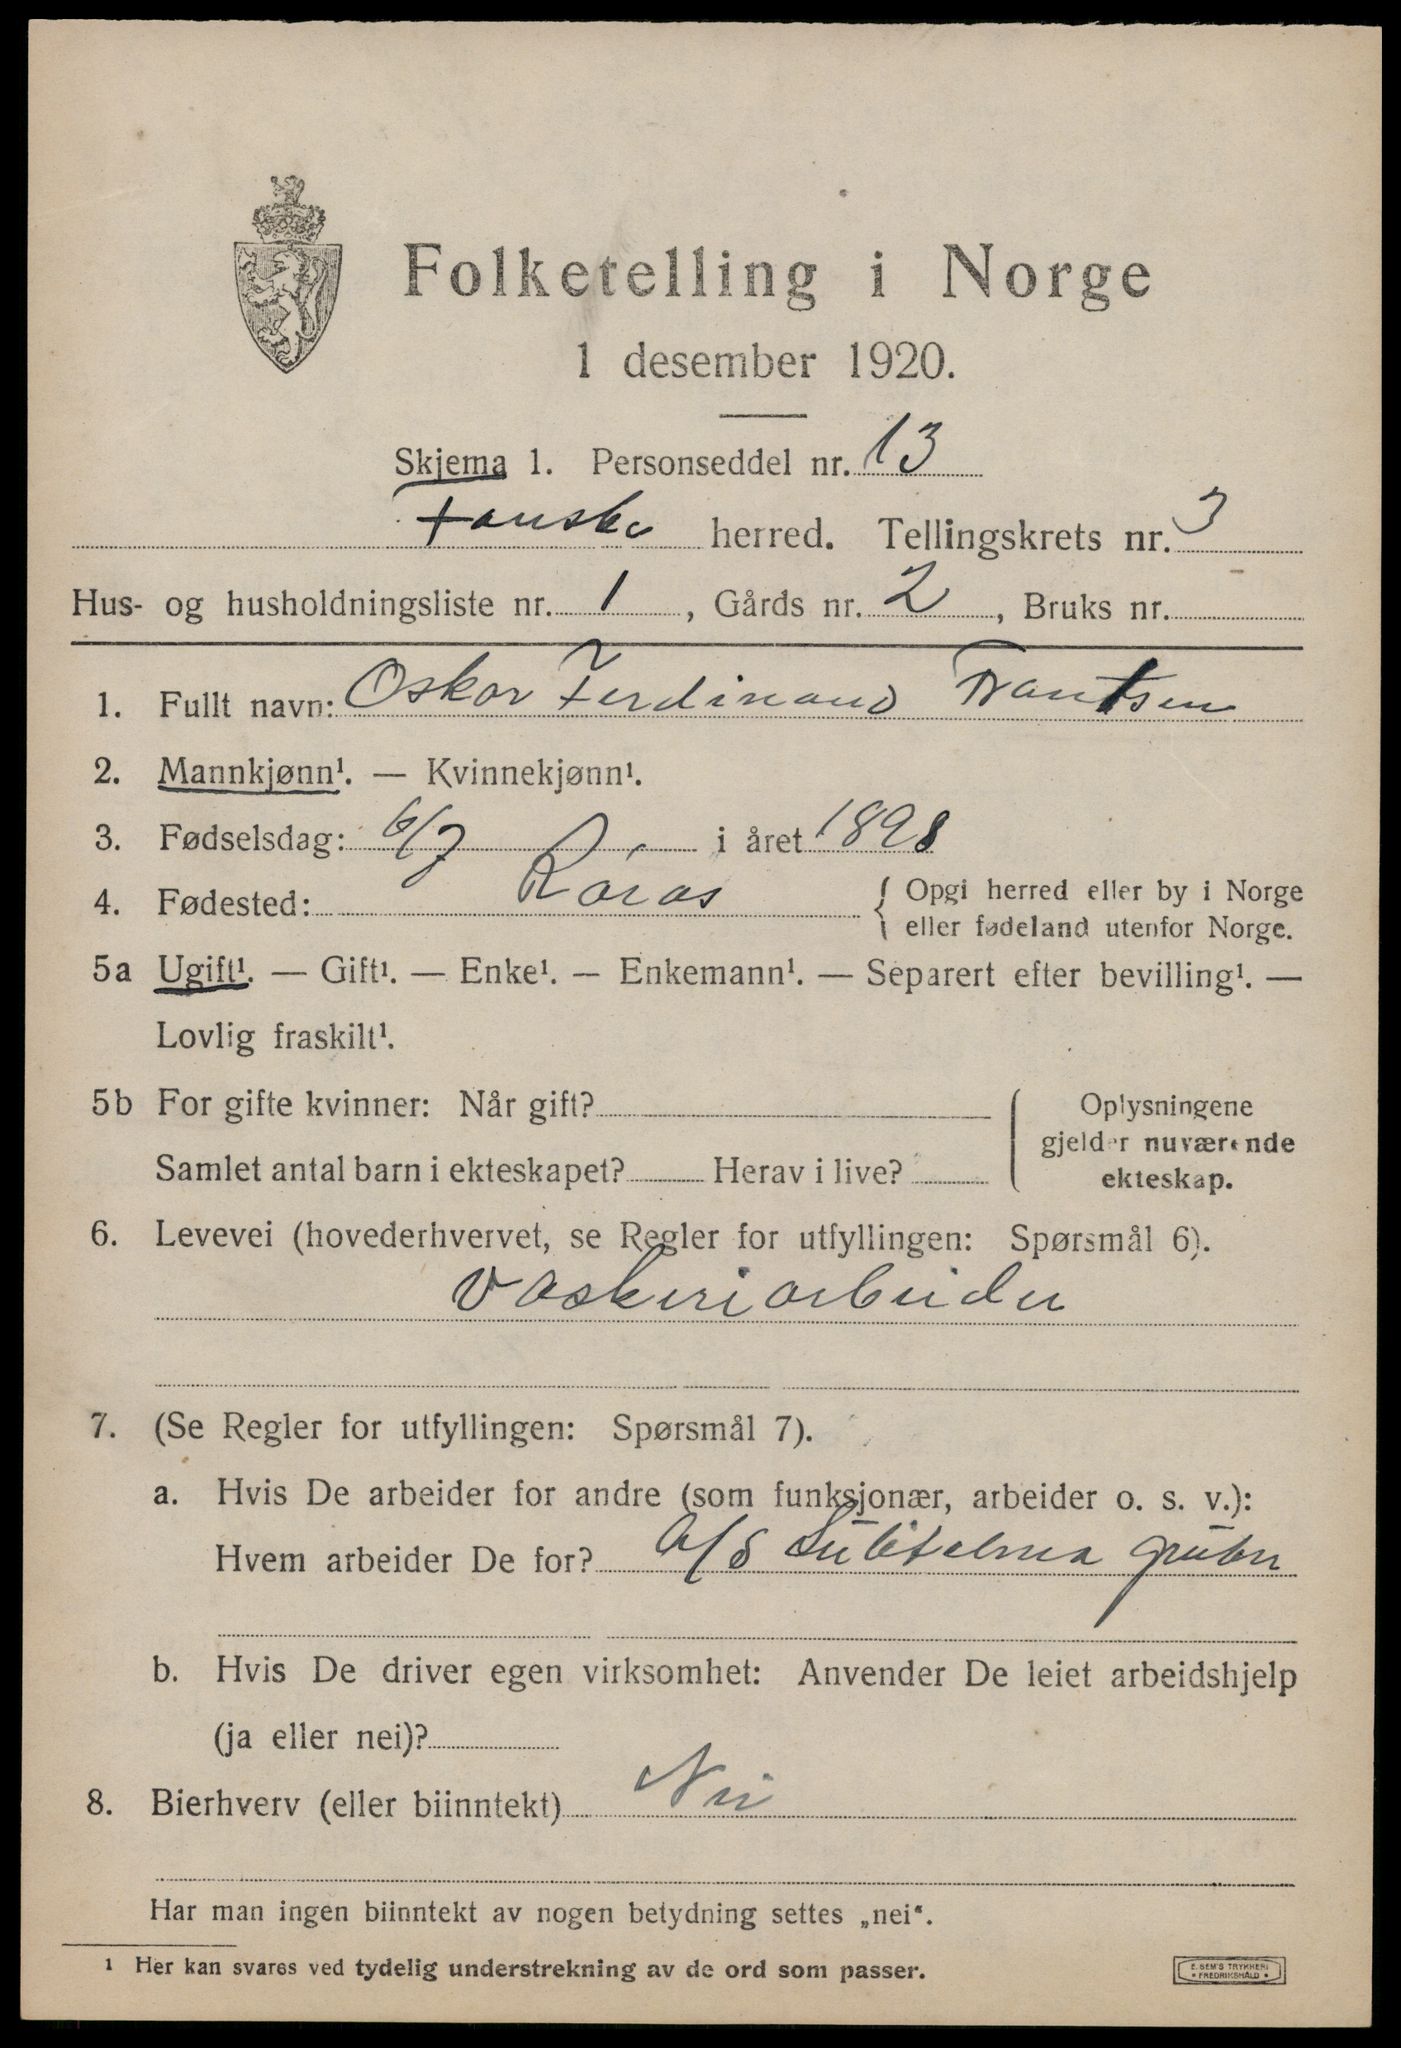 Folketelling i Norge
1 desember 1920.
Skjema 1. Personseddel nr. 13
Fauske herred. Tellingskrets nr. 3
Hus- og husholdningsliste nr. 1, Gårds nr. 2, Bruks nr.
1. Fullt navn: Oskar Ferdinand Frantsen
2. Mannkjønn¹. — Kvinnekjønn¹.
3. Fødselsdag: 6/7 i året 1898
4. Fødested: Röros { Opgi herred eller by i Norge
eller fødeland utenfor Norge.
5a Ugift¹. — Gift¹. — Enke¹. — Enkemann¹. — Separert efter bevilling¹. —
Lovlig fraskilt¹.
5b For gifte kvinner: Når gift?
Samlet antal barn i ekteskapet? Herav i live?
Oplysningene
gjelder nuværende
ekteskap.
6. Levevei (hovederhvervet, se Regler for utfyllingen: Spørsmål 6).
Vaskeriarbeider
7. (Se Regler for utfyllingen: Spørsmål 7).
a. Hvis De arbeider for andre (som funksjonær, arbeider o. s. v.):
Hvem arbeider De for? A/S Sulitelma gruber
b. Hvis De driver egen virksomhet: Anvender De leiet arbeidshjelp
(ja eller nei)?
8. Bierhverv (eller biinntekt) Nei
Har man ingen biinntekt av nogen betydning settes „nei“.
¹ Her kan svares ved tydelig understrekning av de ord som passer.
E. SEM'S TRYKKERI
• FREDRIKSHALD •